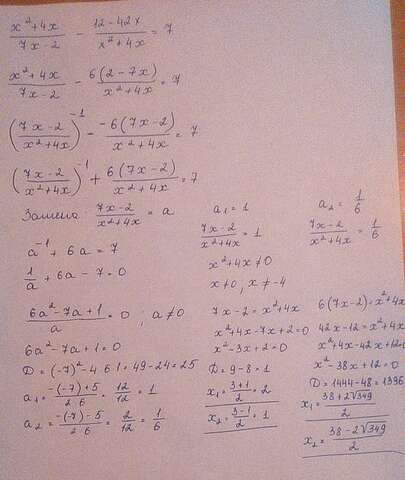 x²+4x / 7x-2 - 12-42x / x²+4x = 7
x²+4x / 7x-2 - 6(2-7x) / x²+4x = 7
(7x-2 / x²+4x)⁻¹ - -6(7x-2) / x²+4x = 7
(7x-2 / x²+4x)⁻¹ + 6(7x-2) / x²+4x = 7
Замена: 7x-2 / x²+4x = a
a⁻¹ + 6a = 7
1/a + 6a - 7 = 0
6a²-7a+1 / a = 0 ; a≠0
6a²-7a+1=0
D=(-7)²-4·6·1=49-24=25
a₁= -(-7)+5 / 2·6 = 12/12 = 1
a₂= -(-7)-5 / 2·6 = 2/12 = 1/6
a₁=1
7x-2 / x²+4x = 1
x²+4x≠0
x≠0, x≠-4
7x-2=x²+4x
x²+4x-7x+2=0
x²-3x+2=0
D=9-8=1
x₁= 3+1 / 2 = 2
x₂= 3-1 / 2 = 1
a₂= 1/6
7x-2 / x²+4x = 1/6
6(7x-2)=x²+4x
42x-12=x²+4x
x²+4x-42x+12=0
x²-38x+12=0
D=1444-48=1396
x₁= 38+2√349 / 2
x₂= 38-2√349 / 2